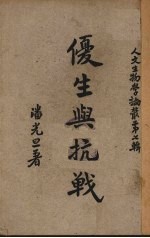 人文生物學論叢第七輯
優生與抗戰
潘光旦著